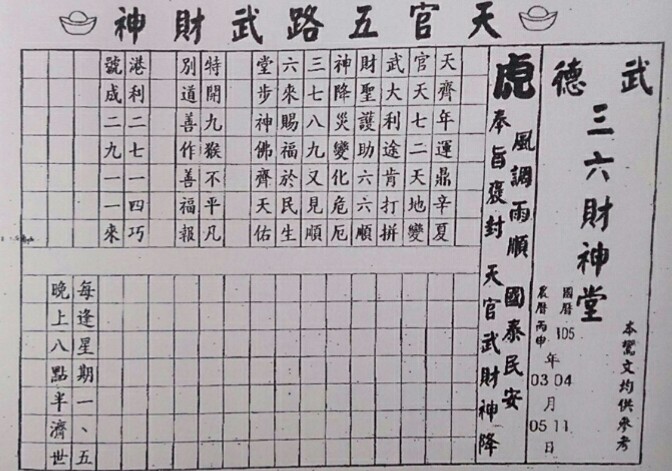 天官五路武財神
武德
三六財神堂
本鸞文均供參考
國曆 105 年 04 月 11 日
農曆 丙申 03 05
風調雨順 國泰民安
虎 奉旨褒封 天官武財神降
天齊年運鼎辛夏
官天七二天地變
武大利途肯打拼
財聖護助六六順
神降災變化危厄
三七八九又見順
六來賜福於民生
堂步神佛齊天佑
特開九猴不平凡
別道善作善福報
港利二七一四巧
號成二九一一來
每逢星期一、五
晚上八點半濟世